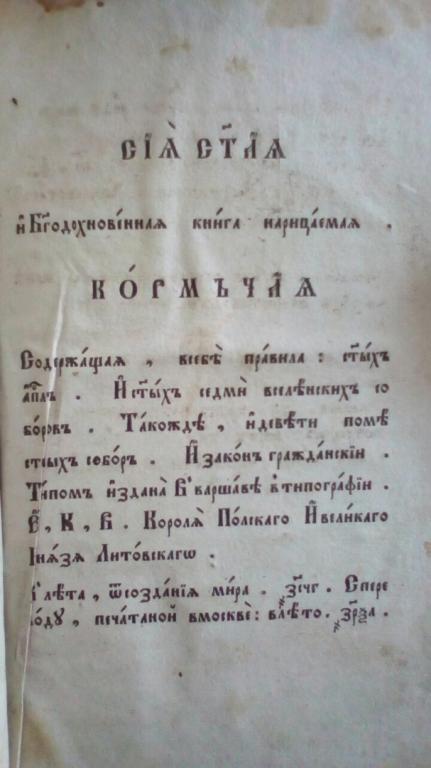 СІѦ̀ СТ҃АѦ
и҆ Бг҃одохнове́нная кни́га нарица́емая .
КО́РМЪЧАѦ
Содержа́щая , всебѣ̀ пра́вила : ст҃ы́хъ
ап҃лъ . И҆ ст҃ы́хъ седмѝ вселе́нских со
бо́ровъ . Та́кождѣ , и҆девѧти помѣ́
стных собо́р . И҆ зако́н гражда́нскїи .
Ти́помъ и҆здана̀ В̾варша́вѣ в̾типогра́фїи .
Е҆̀ , К , В . Короля̀ По́лскаго И҆вели́каго
Кня́зя Лито́вскагѡ .
лѣта , ѿсозда́нїя ми́ра . ҂зс҃чг . Спере
во́ду , печа́таной вмосквѣ̀ : влѣ́то .